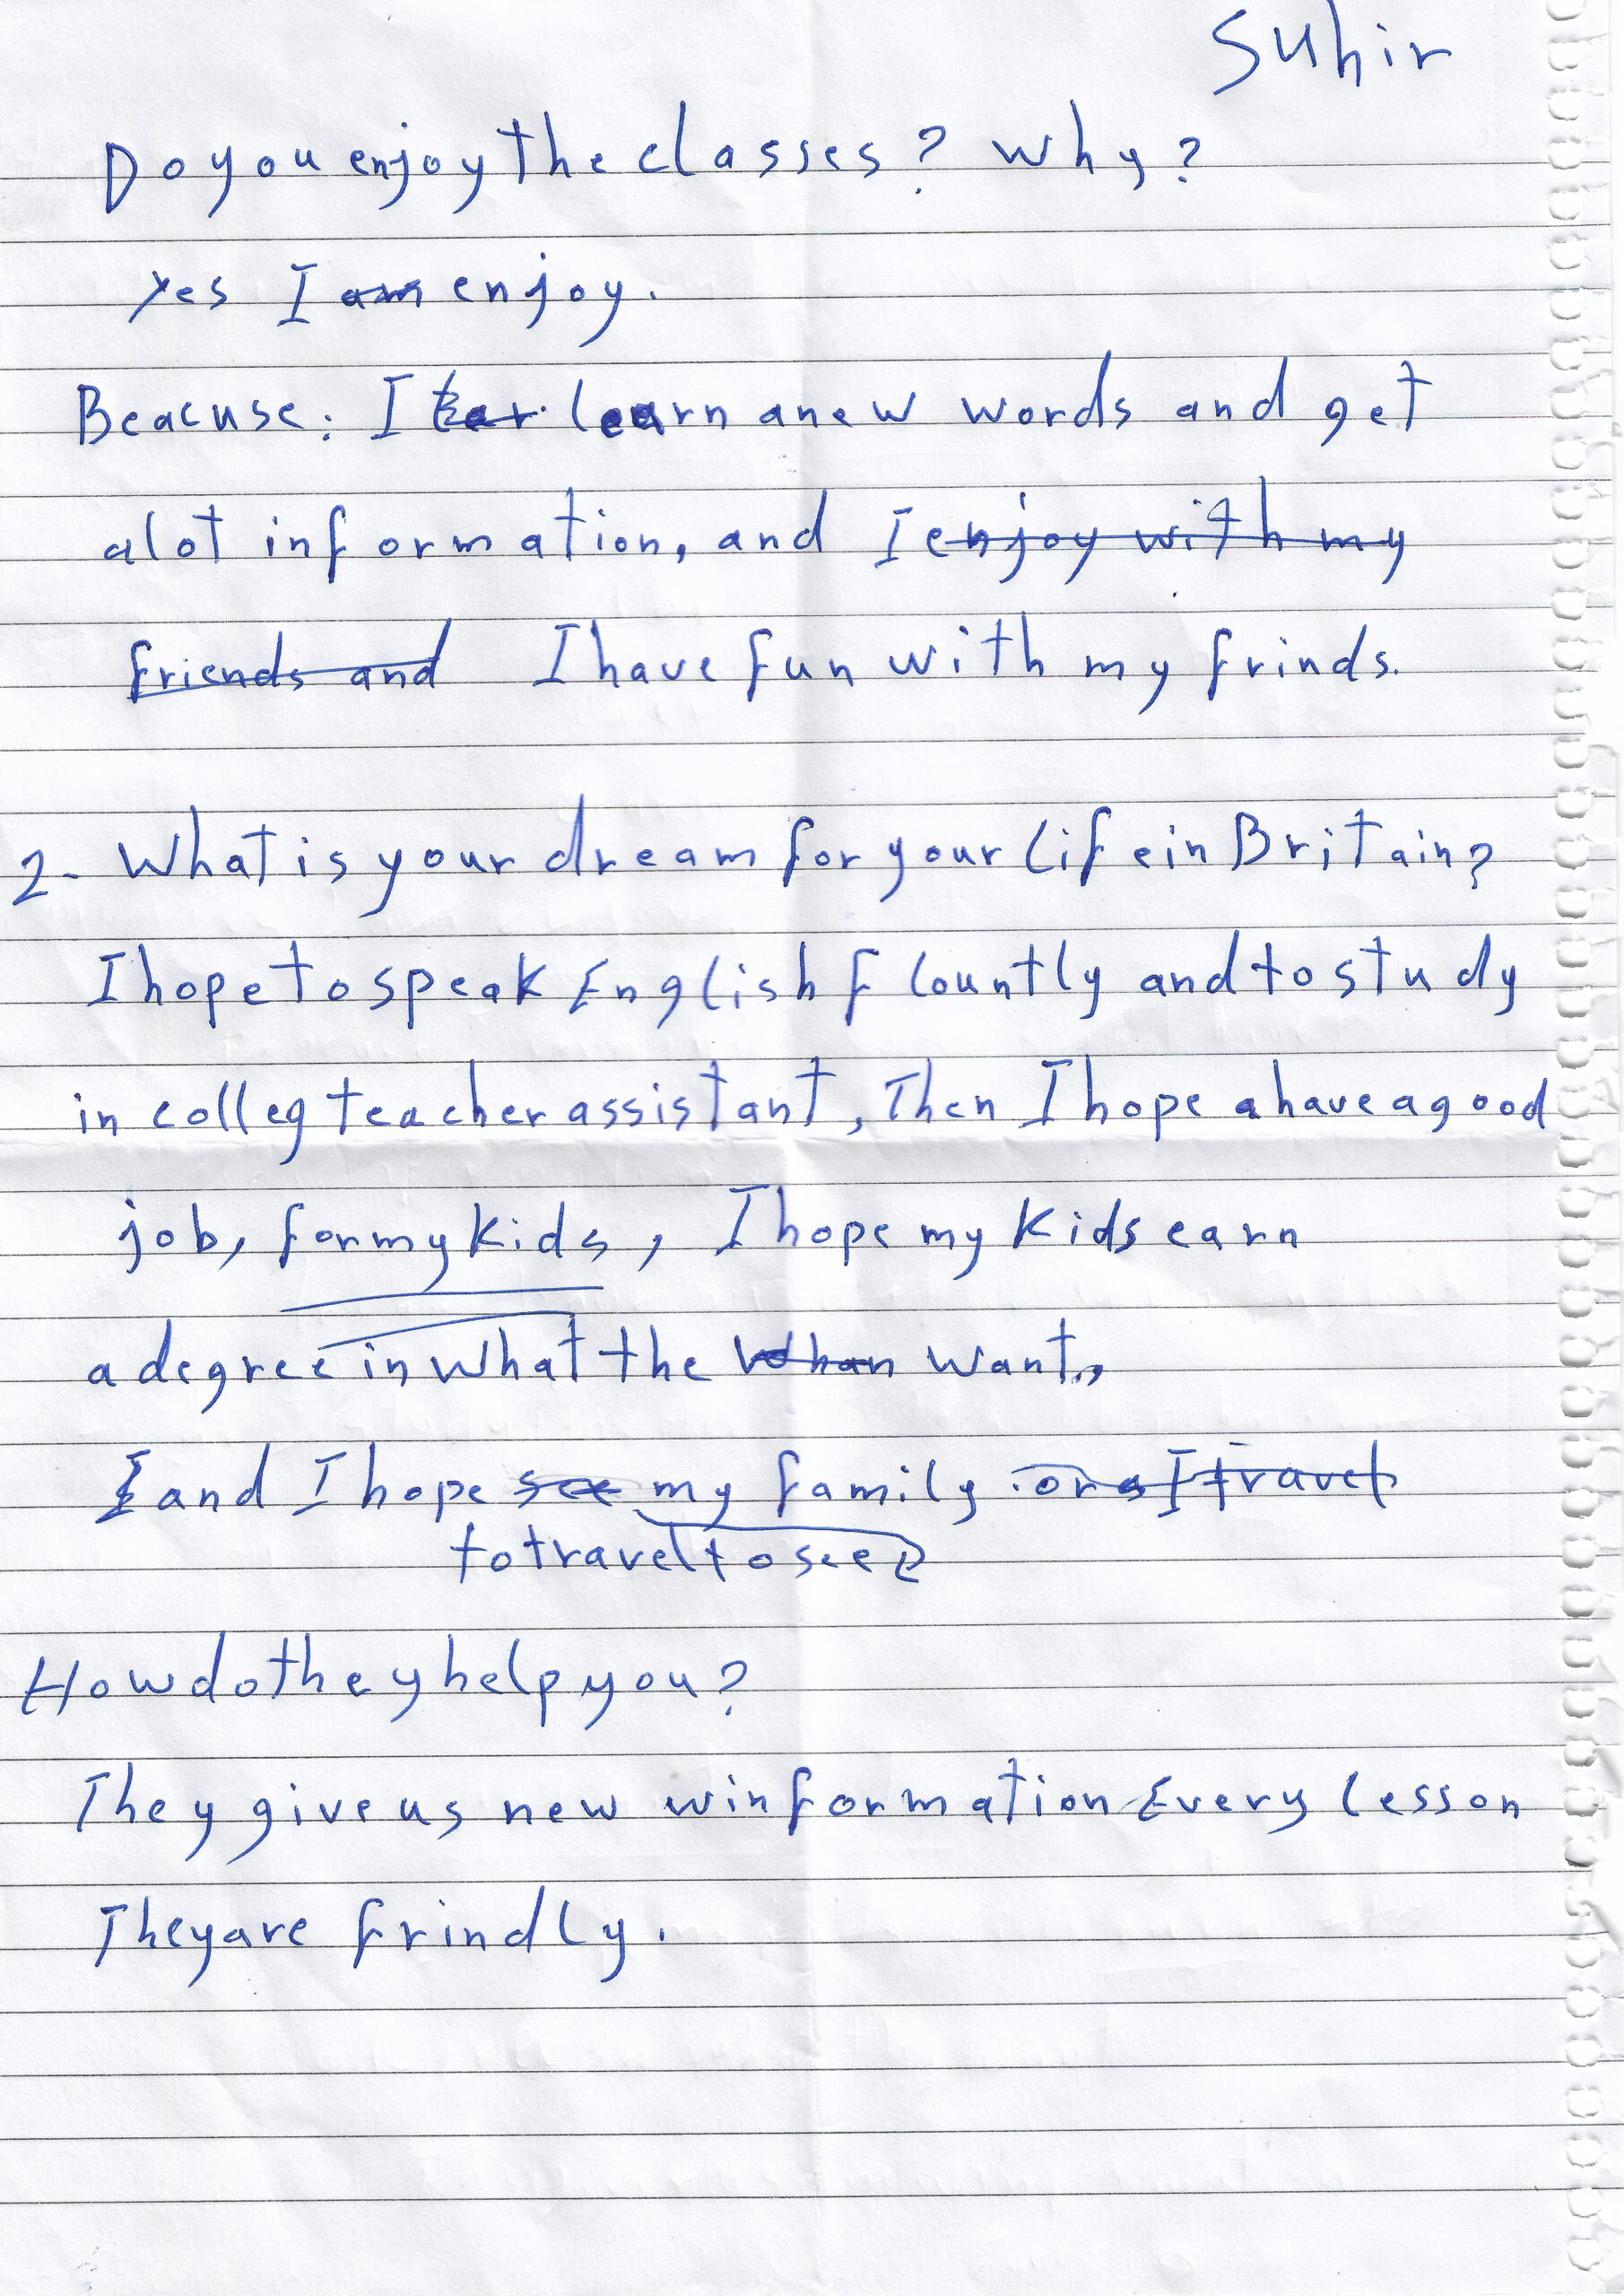 Suhir
Do you enjoy the classes? Why?
Yes I am enjoy.
Beacuse: I learn a new words and get
alot information, and I enjoy with my
friends and I have fun with my frinds.
2- What is your dream for your life in Britain?
I hope to speak English flountly and to study
in colleg teacher assistant, Then I hope a have a good
job, for my kids, I hope my kids earn
a degree in what the want,
and I hope see my family or I travel
to travel to see
How do they help you?
They give us new winformation Every lesson
They are frindly.